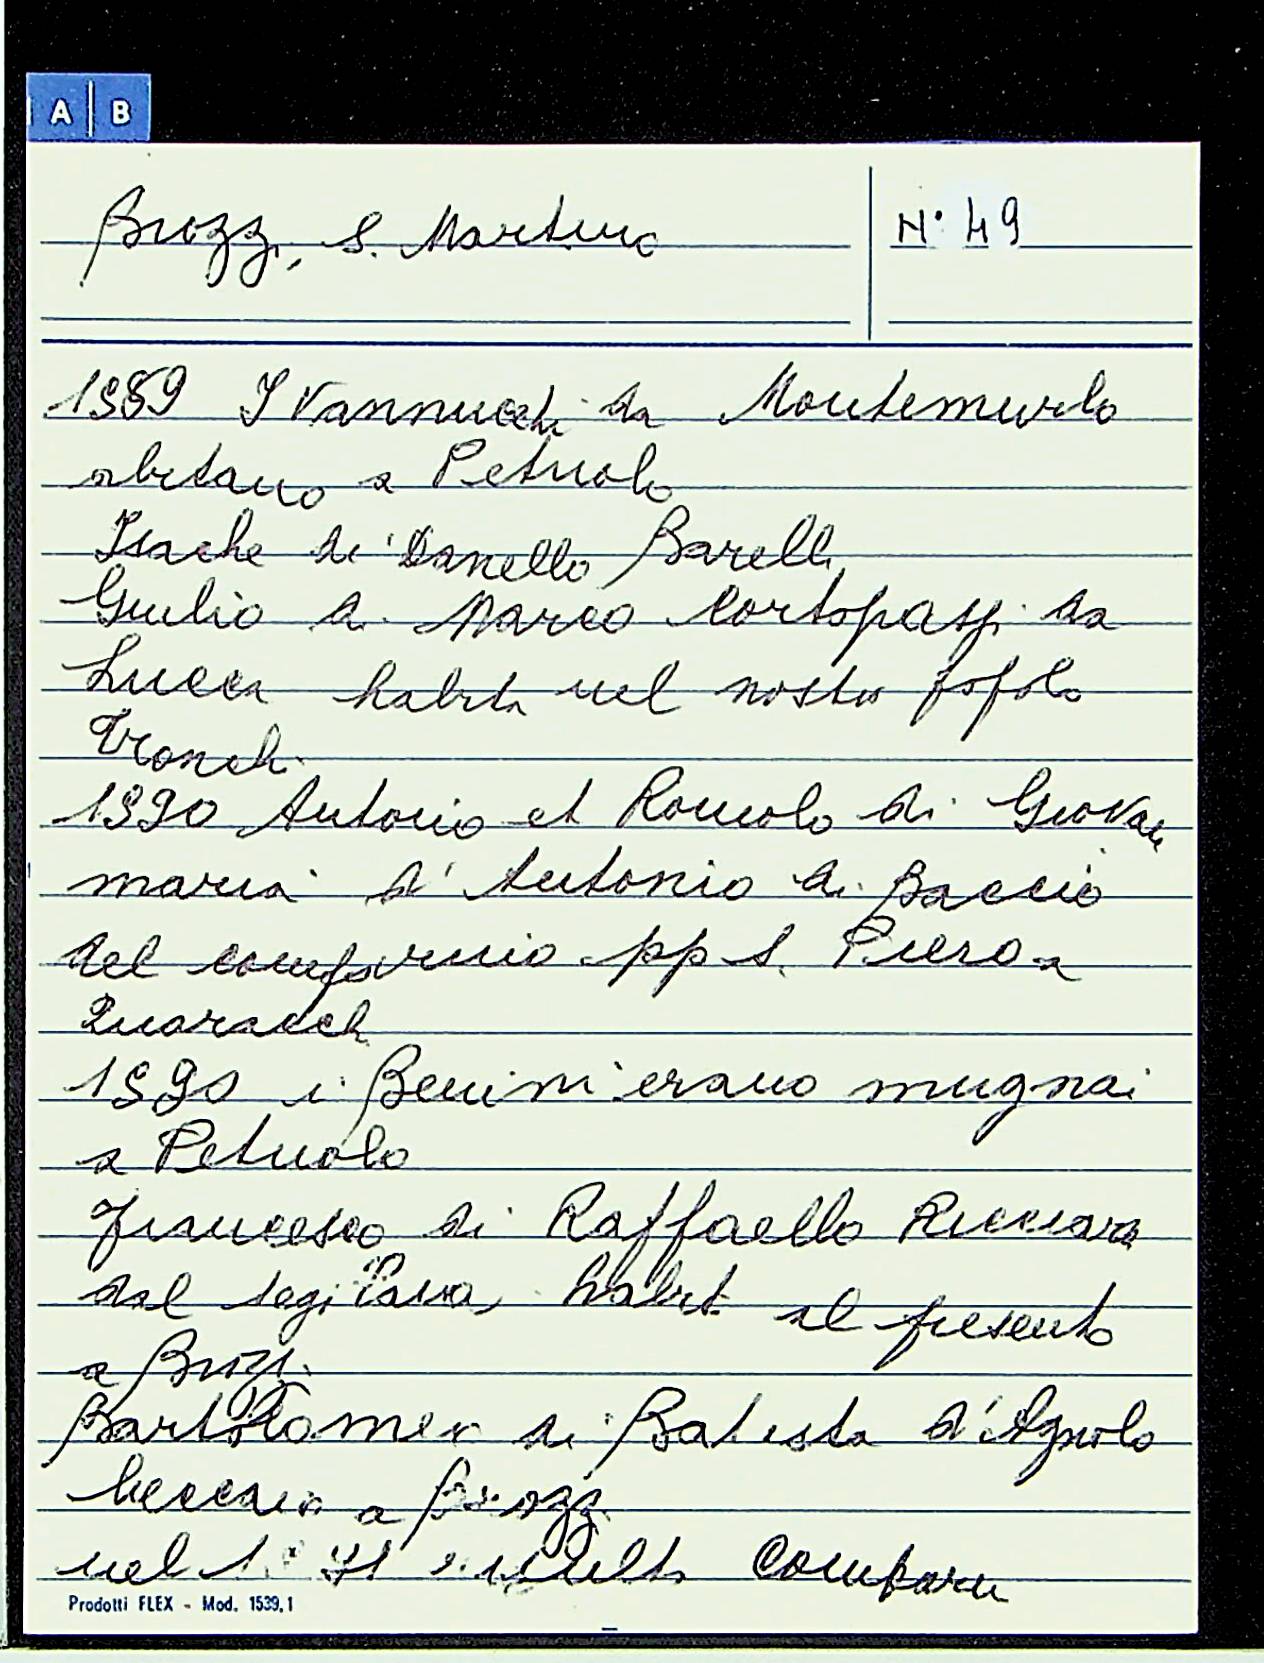 A B
Brozzi, S. Martino
N° 49
1589 I Vannucchi da Montemurlo
abitano a Petriolo
Isache di Danello Barelli
Giulio di Marco Cortopassi da
Lucca habita nel nostro popolo
Tronchi
1590 Antonio et Romolo di Giovan
maria d'Antonio di Baccio
del comp pp S. Piero a
Quaracchi
1590 i Benini erano mugnai
a Petriolo
Francesco di Raffaello
dal Pavia, habit. al presente
a Brozzi
Bartolomeo di Batista d'Agnolo
beccaio a Brozzi
nel
Prodotti FLEX - Mod. 1539.1